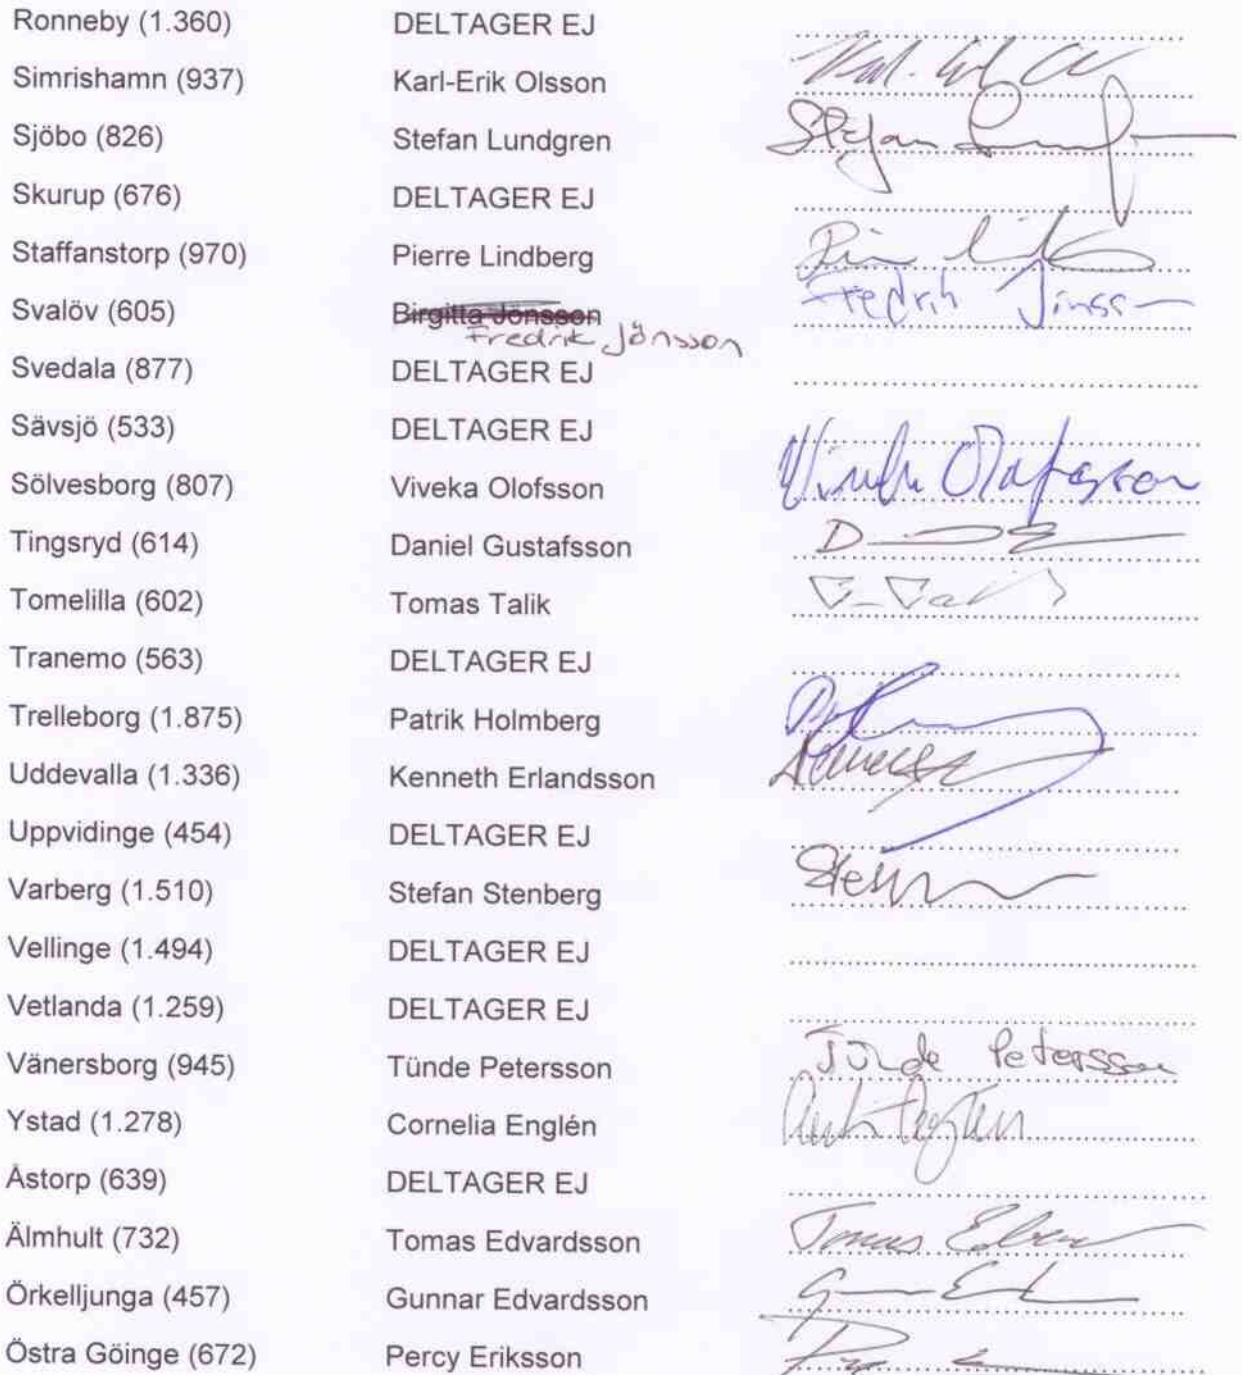 Ronneby (1.360) DELTAGER EJ
Simrishamn (937) Karl-Erik Olsson
Sjöbo (826) Stefan Lundgren Stefan
Skurup (676) DELTAGER EJ
Staffanstorp (970) Pierre Lindberg
Svalöv (605) Birgitta Jönsson Fredrik Jönsson
Fredrik Jönsson
Svedala (877) DELTAGER EJ
Sävsjö (533) DELTAGER EJ
Sölvesborg (807) Viveka Olofsson Olofsson
Tingsryd (614) Daniel Gustafsson
Tomelilla (602) Tomas Talik
Tranemo (563) DELTAGER EJ
Trelleborg (1.875) Patrik Holmberg
Uddevalla (1.336) Kenneth Erlandsson
Uppvidinge (454) DELTAGER EJ
Varberg (1.510) Stefan Stenberg
Vellinge (1.494) DELTAGER EJ
Vetlanda (1.259) DELTAGER EJ
Vänersborg (945) Tünde Petersson Tünde Petersson
Ystad (1.278) Cornelia Englén
Åstorp (639) DELTAGER EJ
Älmhult (732) Tomas Edvardsson Tomas
Örkelljunga (457) Gunnar Edvardsson
Östra Göinge (672) Percy Eriksson